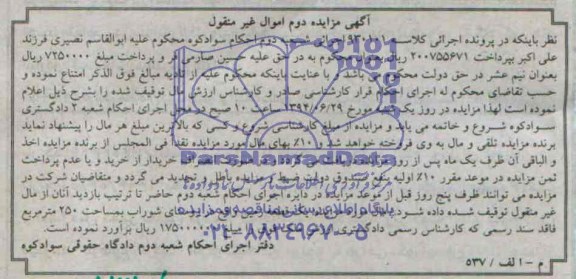 آگهی مزایده دوم اموال غیر منقول
نظر باینکه در پرونده اجرائی کلاسه ۹۳۰۱۰۱ اجرائی شعبه دوم احکام سوادکوه محکوم علیه ابوالقاسم نصیری فرزند
علی اکبر بپرداخت ۲۰۰۷۵۵۶۷۱ ریال محکوم به در حق علیه حسین صارمی فر و پرداخت مبلغ ۷۲۵۰۰۰۰ ریال
بعنوان نیم عشر در حق دولت محکوم می باشد و با عنایت اینکه محکوم علیه از تادیه مبالغ فوق الذکر امتناع نموده و
حسب تقاضای محکوم له اجرای احکام قرار کارشناسی صادر و کارشناس ارزش مال توقیف شده را بشرح ذیل اعلام
نموده است لهذا مزایده در روز یکشنبه مورخ ۱۳۹۴/۰۶/۲۹ ساعت ۱۰ صبح در محل اجرای احکام شعبه ۲ دادگستری
سوادکوه شروع و خاتمه می یابد و مزایده از مبلغ کارشناسی شروع و کسی که بالاترین مبلغ هر مال را پیشنهاد نماید
برنده مزایده تلقی و مال به وی فروخته خواهد شد و ۱۰٪ بهای مال مورد مزایده نقداً فی المجلس از برنده مزایده اخذ
و الباقی آن ظرف یک ماه پس از روز خریدار از خرید و یا عدم پرداخت
ثمن مزایده در موعد مقرر ۱۰٪ اولیه بنفع صندوق دولت ضبط و مزایده باطل و تجدید می گردد و متقاضیان شرکت در
مزایده می توانند ظرف پنج روز قبل از موعد مزایده در دایره اجرای احکام شعبه دوم حاضر تا ترتیب بازدید آنان از مال
غیر منقول توقیف شده داده شود شوراب بمساحت ۲۵۰ مترمربع
فاقد سند رسمی که کارشناس رسمی دادگستری مبلغ ۱۷۵۰۰۰۰۰۰ ریال برآورد نموده است.
دفتر اجرای احکام شعبه دوم دادگاه حقوقی سوادکوه
م - ۱ لف / ۵۳۷
ParsNamadData
پایگاه اطلاع رسانی مناقصه و مزایده
۰۲۱-۸۸۳۴۹۶۷۰-۵